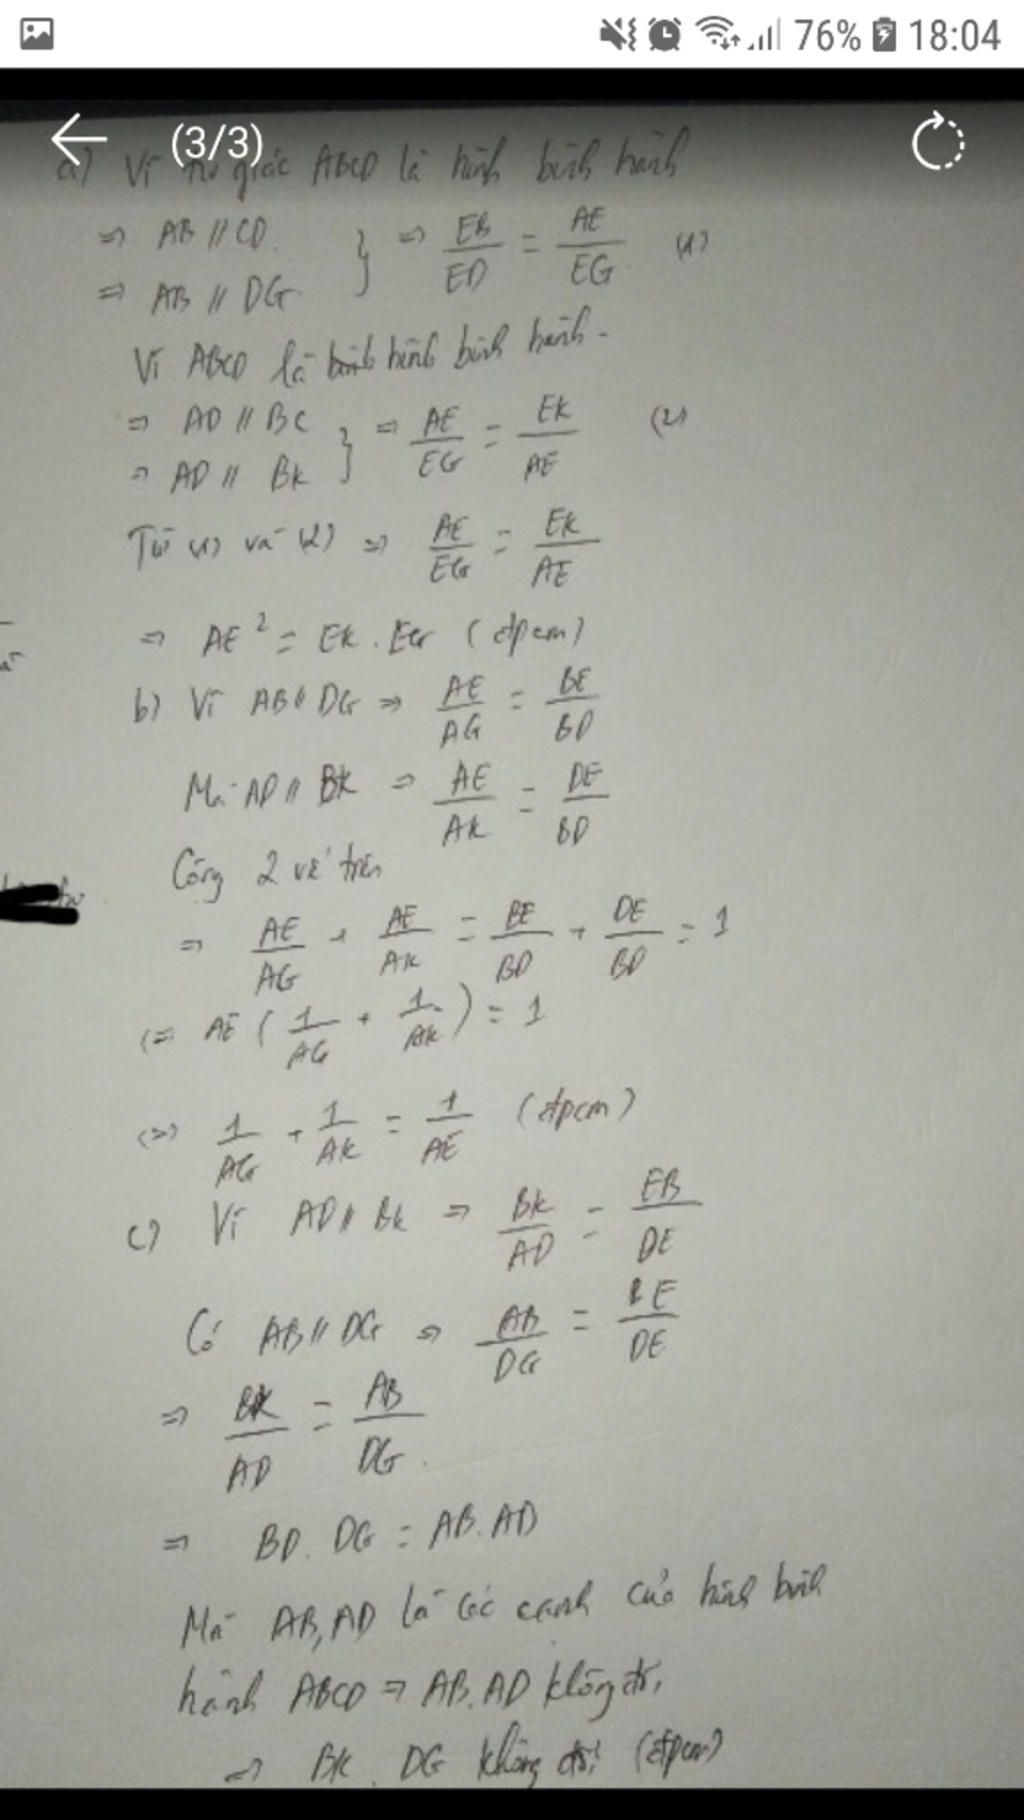 76% 18:04
(3/3)
a) Vì tứ giác ABCD là hình bình hành
⇒ AB // CD
⇒ AB // DG } ⇒ EB/ED = AE/EG (1)
Vì ABCD là hình bình hành.
⇒ AD // BC
⇒ AD // BK } ⇒ AE/EG = EK/AE (2)
Từ (1) và (2) ⇒ AE/EG = EK/AE
⇒ AE² = EK . EG (đpcm)
b) Vì AB // DG ⇒ AE/AG = BE/BD
Mà AD // BK ⇒ AE/AK = DE/BD
Cộng 2 vế trên
⇒ AE/AG + AE/AK = BE/BD + DE/BD = 1
(=) AE (1/AG + 1/AK) = 1
(=) 1/AG + 1/AK = 1/AE (đpcm)
c) Vì AD // BK ⇒ BK/AD = EB/DE
Có AB // DG ⇒ AB/DG = BE/DE
⇒ BK/AD = AB/DG
⇒ BD . DG = AB . AD
Mà AB, AD là các cạnh của hình bình
hành ABCD ⇒ AB . AD không đổi
⇒ BK . DG không đổi (đpcm)